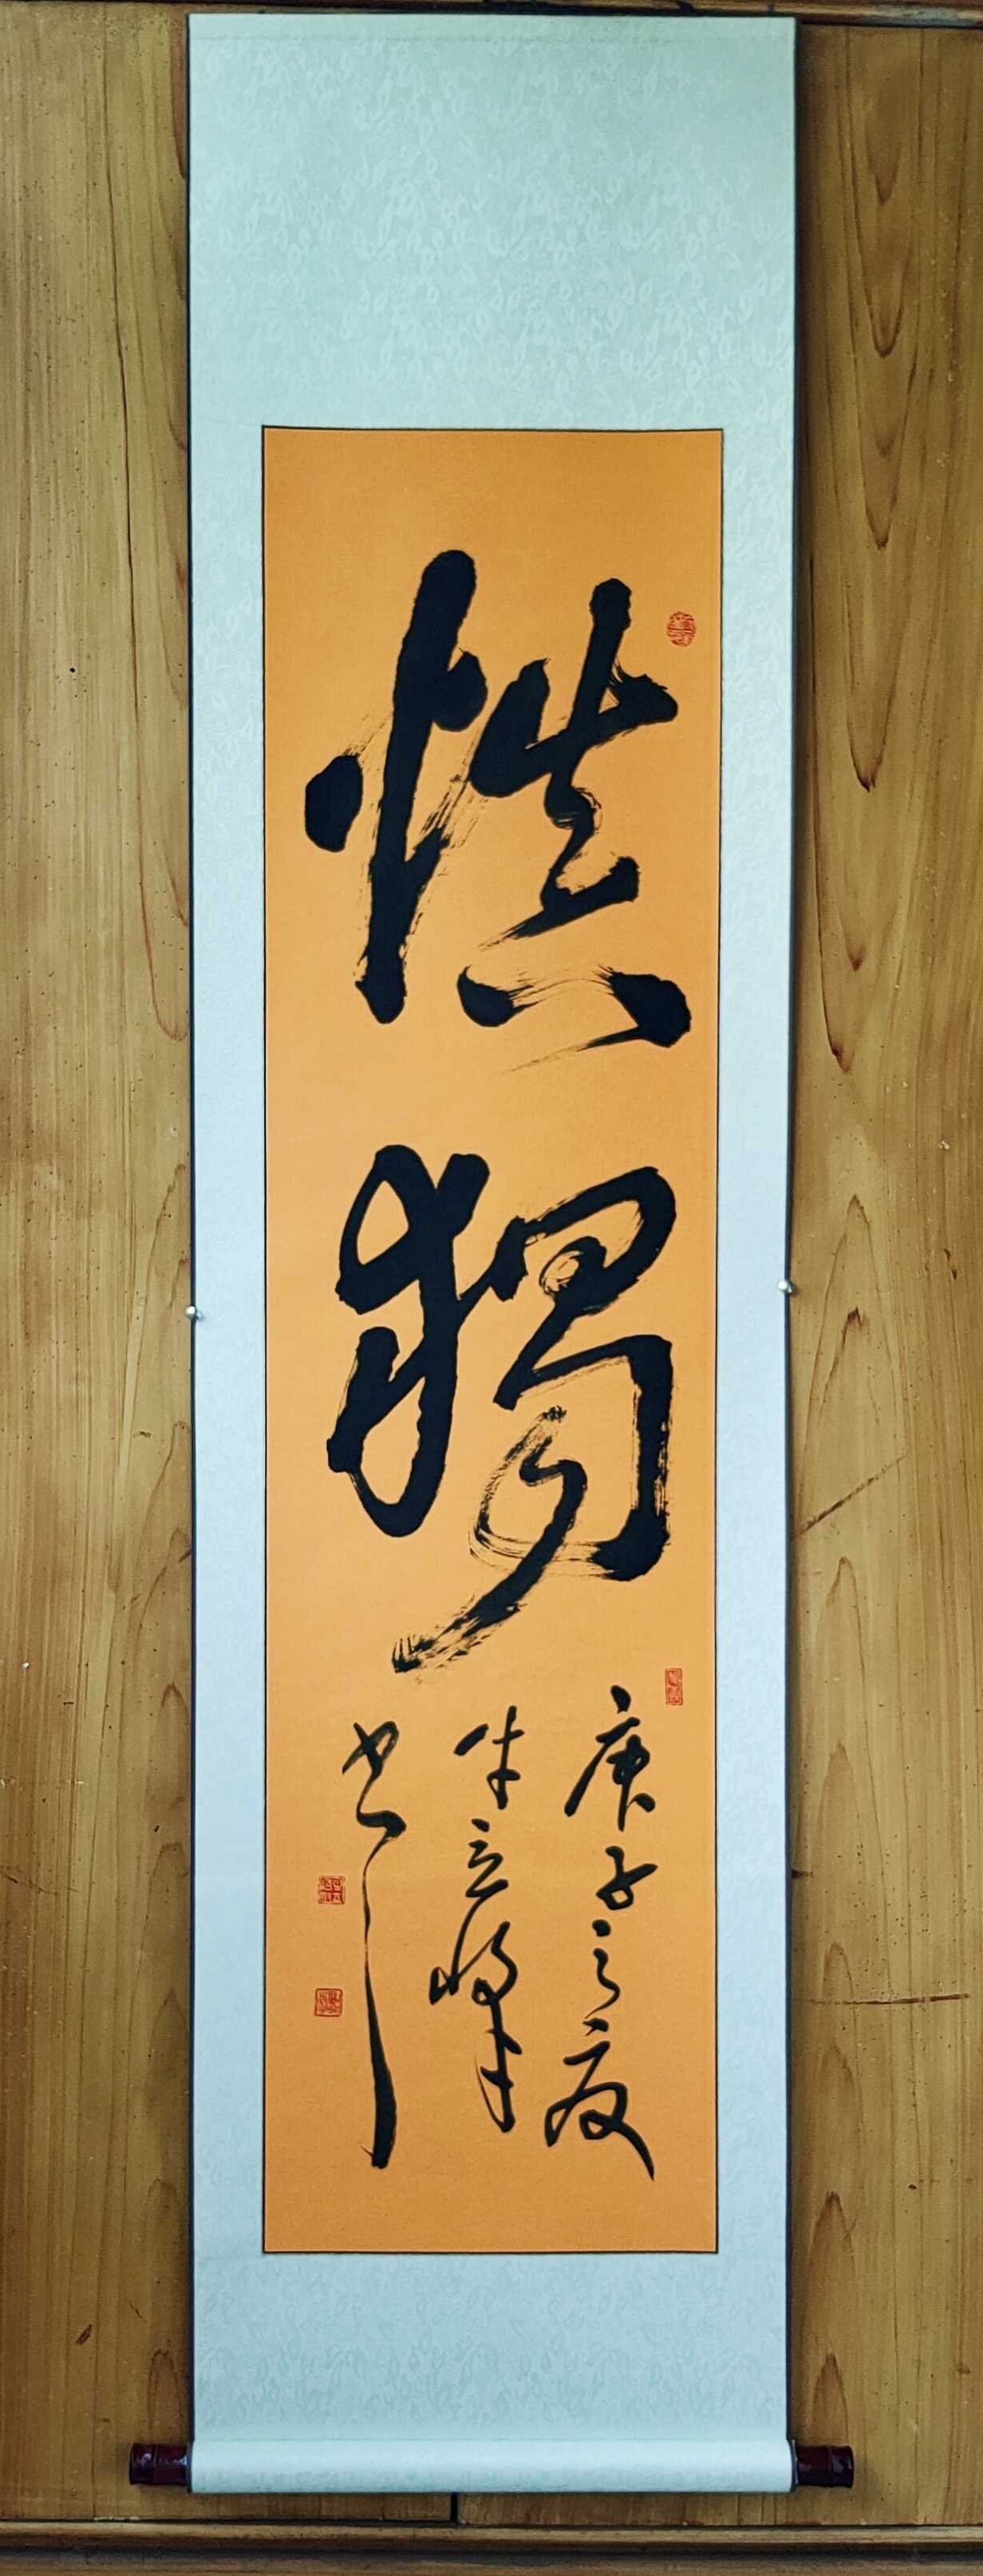 慎獨
庚子之夏
牛立峰
書